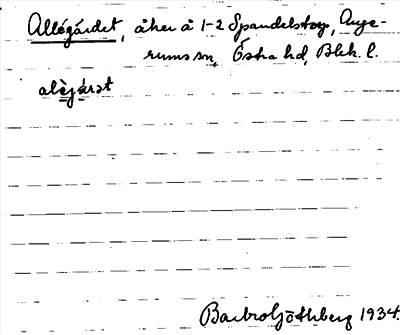 Allégärdet, åker å 1-2 Spandelstorp, Auge-
rums sn, Östra hd, Blek. l.
alèjáʀət
Barbro Göthberg 1934.